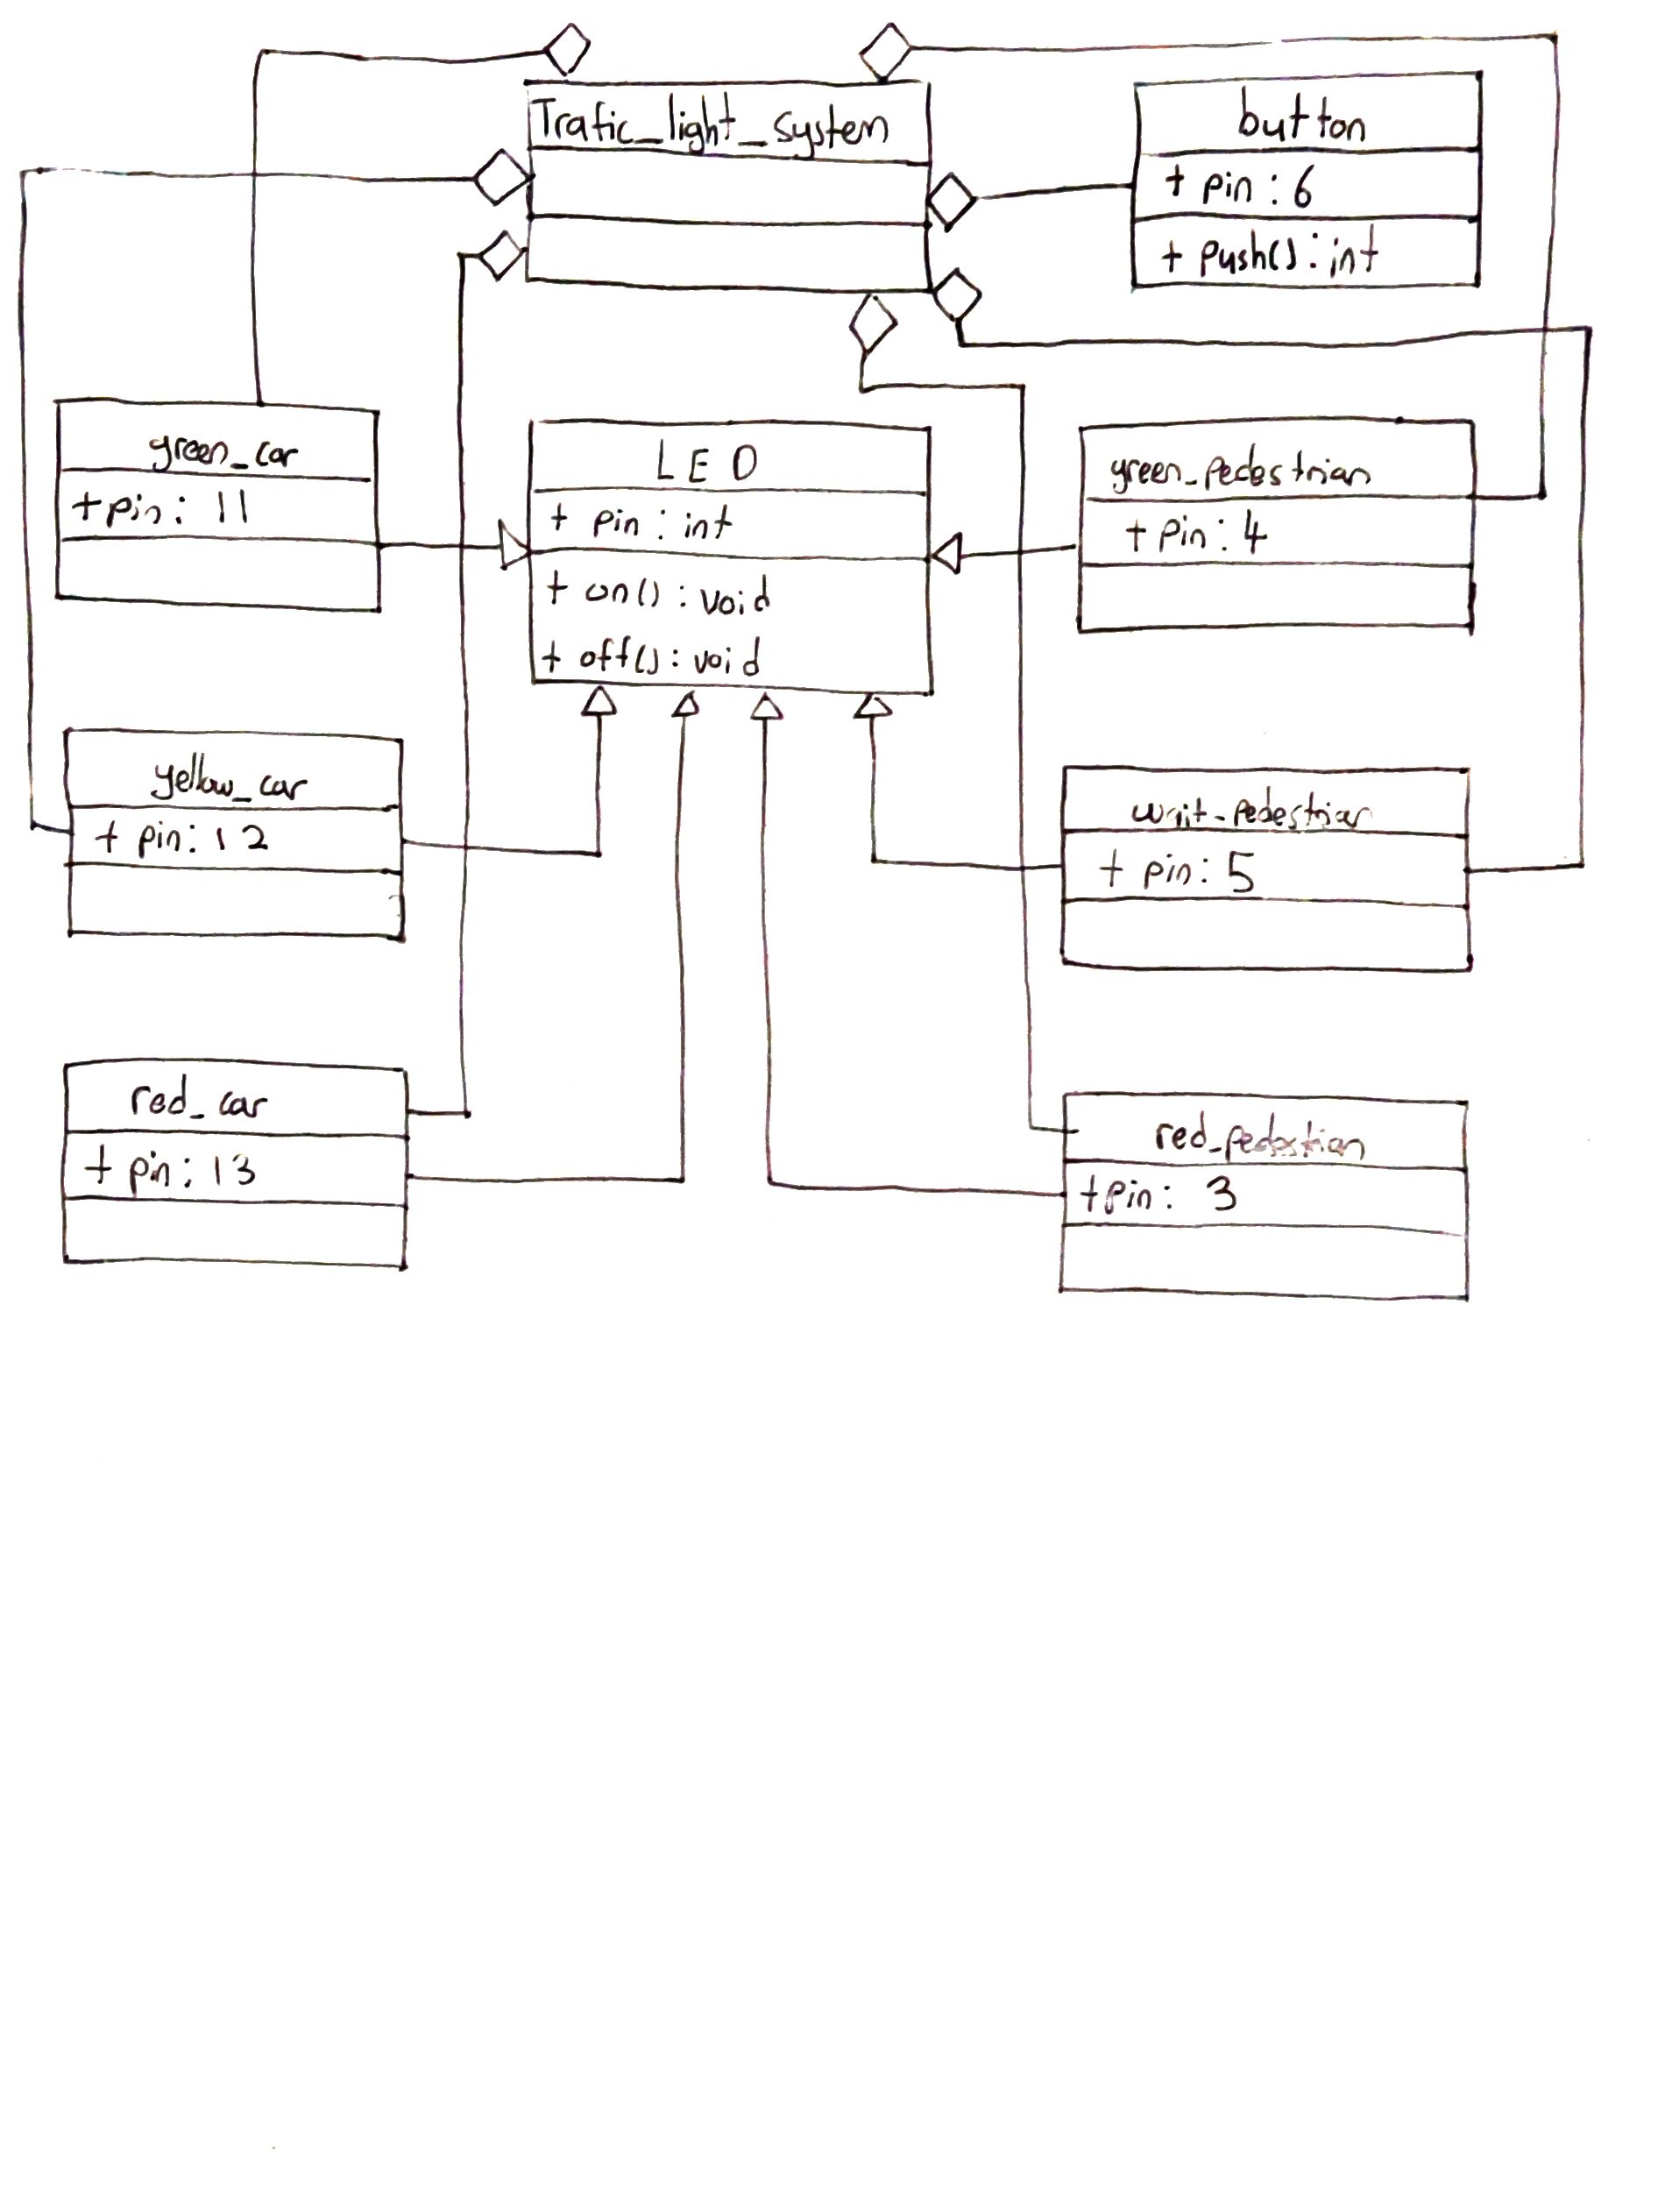 Trafic_light_system
button
+ pin : 6
+ push() : int
green_car
+ pin : 11
LED
+ pin : int
+ on() : void
+ off() : void
green_pedestrian
+ pin : 4
yellow_car
+ pin : 12
wait_pedestrian
+ pin : 5
red_car
+ pin : 13
red_pedestian
+ pin : 3